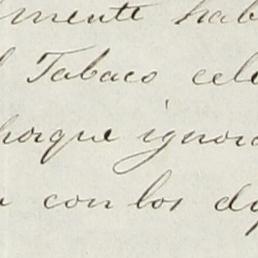 mente hab
Tabaco cele
porque ignora
con los de